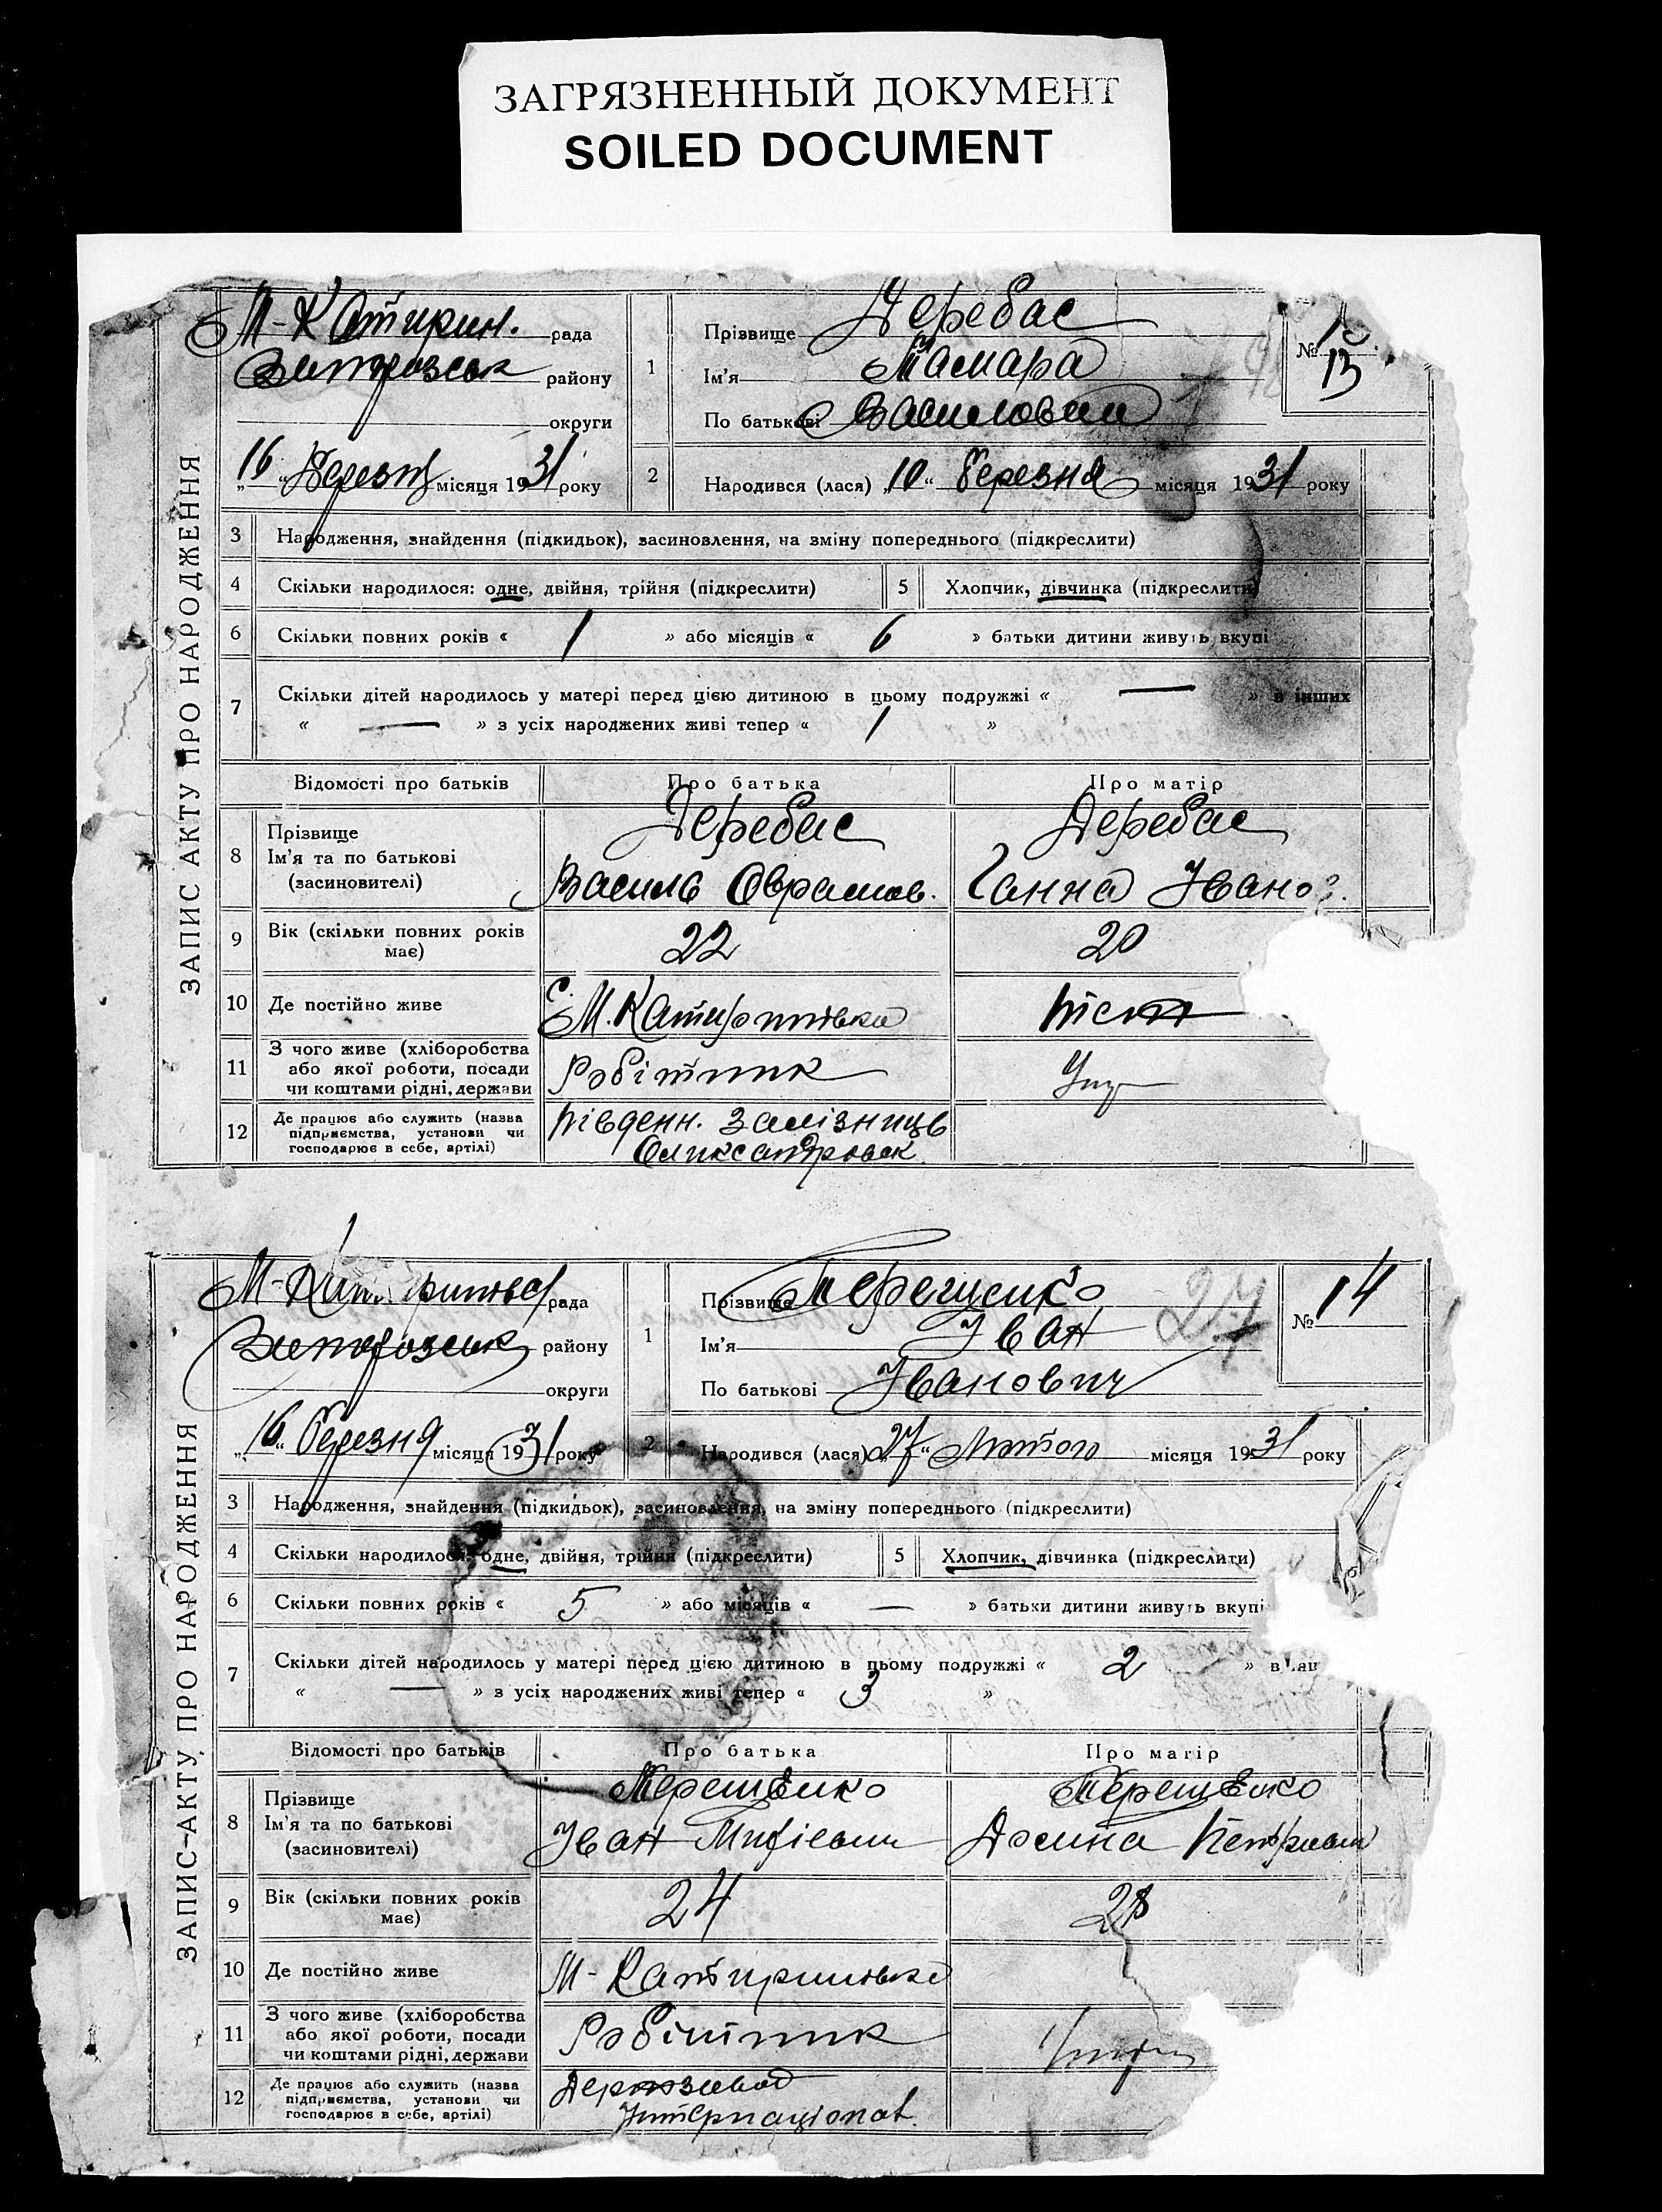 ЗАГРЯЗНЕННЫЙ ДОКУМЕНТ
SOILED DOCUMENT
ЗАПИС АКТУ ПРО НАРОДЖЕННЯ
М-Катирин. рада
району
округи
„16“ місяця 1931 року
1
Прізвище Деребас
Ім'я Тамара
По батькові
№ 13
2
Народився (лася) „10“ березня місяця 1931 року
3 Народження, знайдення (підкидьок), засиновлення, на зміну попереднього (підкреслити)
4 Скільки народилося: одне, двійня, трійня (підкреслити) 5 Хлопчик, дівчинка (підкреслити)
6 Скільки повних років « 1 » або місяців « 6 » батьки дитини живуть вкупі
7 Скільки дітей народилось у матері перед цією дитиною в цьому подружжі « — » в інших
« — » з усіх народжених живі тепер « 1 »
Відомості про батьків Про батька Про матір
8 Прізвище
Ім'я та по батькові
(засиновителі)
Деребас
Василь Оврамов.
Деребас
Ганна Іванов.
9 Вік (скільки повних років має) 22 20
10 Де постійно живе с. М. Катиринівка
11 З чого живе (хліборобства або якої роботи, посади чи коштами рідні, держави Робітник
12 Де працює або служить (назва підприємства, установи чи господарює в себе, артілі) Південн. залізниць
ЗАПИС-АКТУ ПРО НАРОДЖЕННЯ
рада
району
округи
„16“ березня місяця 1931 року
1
Прізвище Терещенко
Ім'я Іван
По батькові Іванович
27
№ 14
2
Народився (лася) „27“ Лютого місяця 1931 року
3 Народження, знайдення (підкидьок), засиновлення, на зміну попереднього (підкреслити)
4 Скільки народилося: одне, двійня, трійня (підкреслити) 5 Хлопчик, дівчинка (підкреслити)
6 Скільки повних років « 5 » або місяців « — » батьки дитини живуть вкупі
7 Скільки дітей народилось у матері перед цією дитиною в цьому подружжі « 2 »
« — » з усіх народжених живі тепер « 3 »
Відомості про батьків Про батька Про матір
8 Прізвище
Ім'я та по батькові
(засиновителі)
Терещенко
Іван
Терещенко
9 Вік (скільки повних років має) 24
10 Де постійно живе М-Катиринівка
11 З чого живе (хліборобства або якої роботи, посади чи коштами рідні, держави Робітник
12 Де працює або служить (назва підприємства, установи чи господарює в себе, артілі) Держзавод
Інтернаціонал.